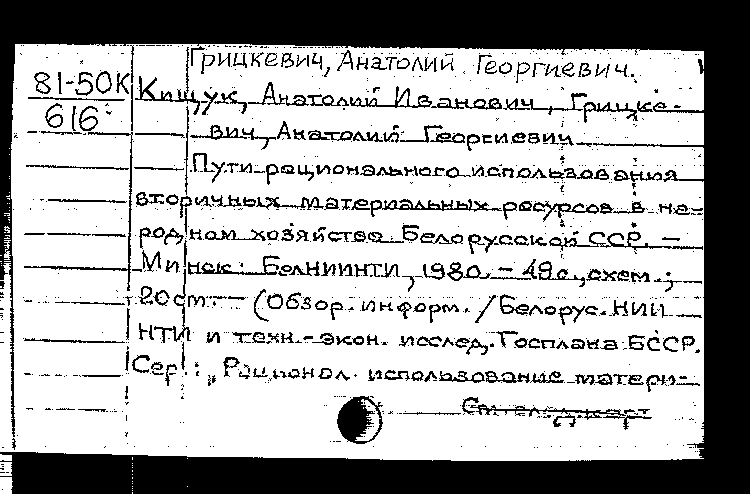 Грицкевич, Анатолий Георгиевич.
81-50К Кищук, Анатолий Иванович, Грицке-
616 вич, Анатолий Георгиевич
Пути рационального использования
вторичных материальных ресурсов в на-
родном хозяйстве Белорусской ССР. —
Минск: БелНИИНТИ, 1980. - 49с., схем.;
20см. — (Обзор. информ. / Белорус. НИИ
НТИ и техн.-экон. исслед. Госплана БССР.
Сер.: Рационал. использование матери-
См. след. карт